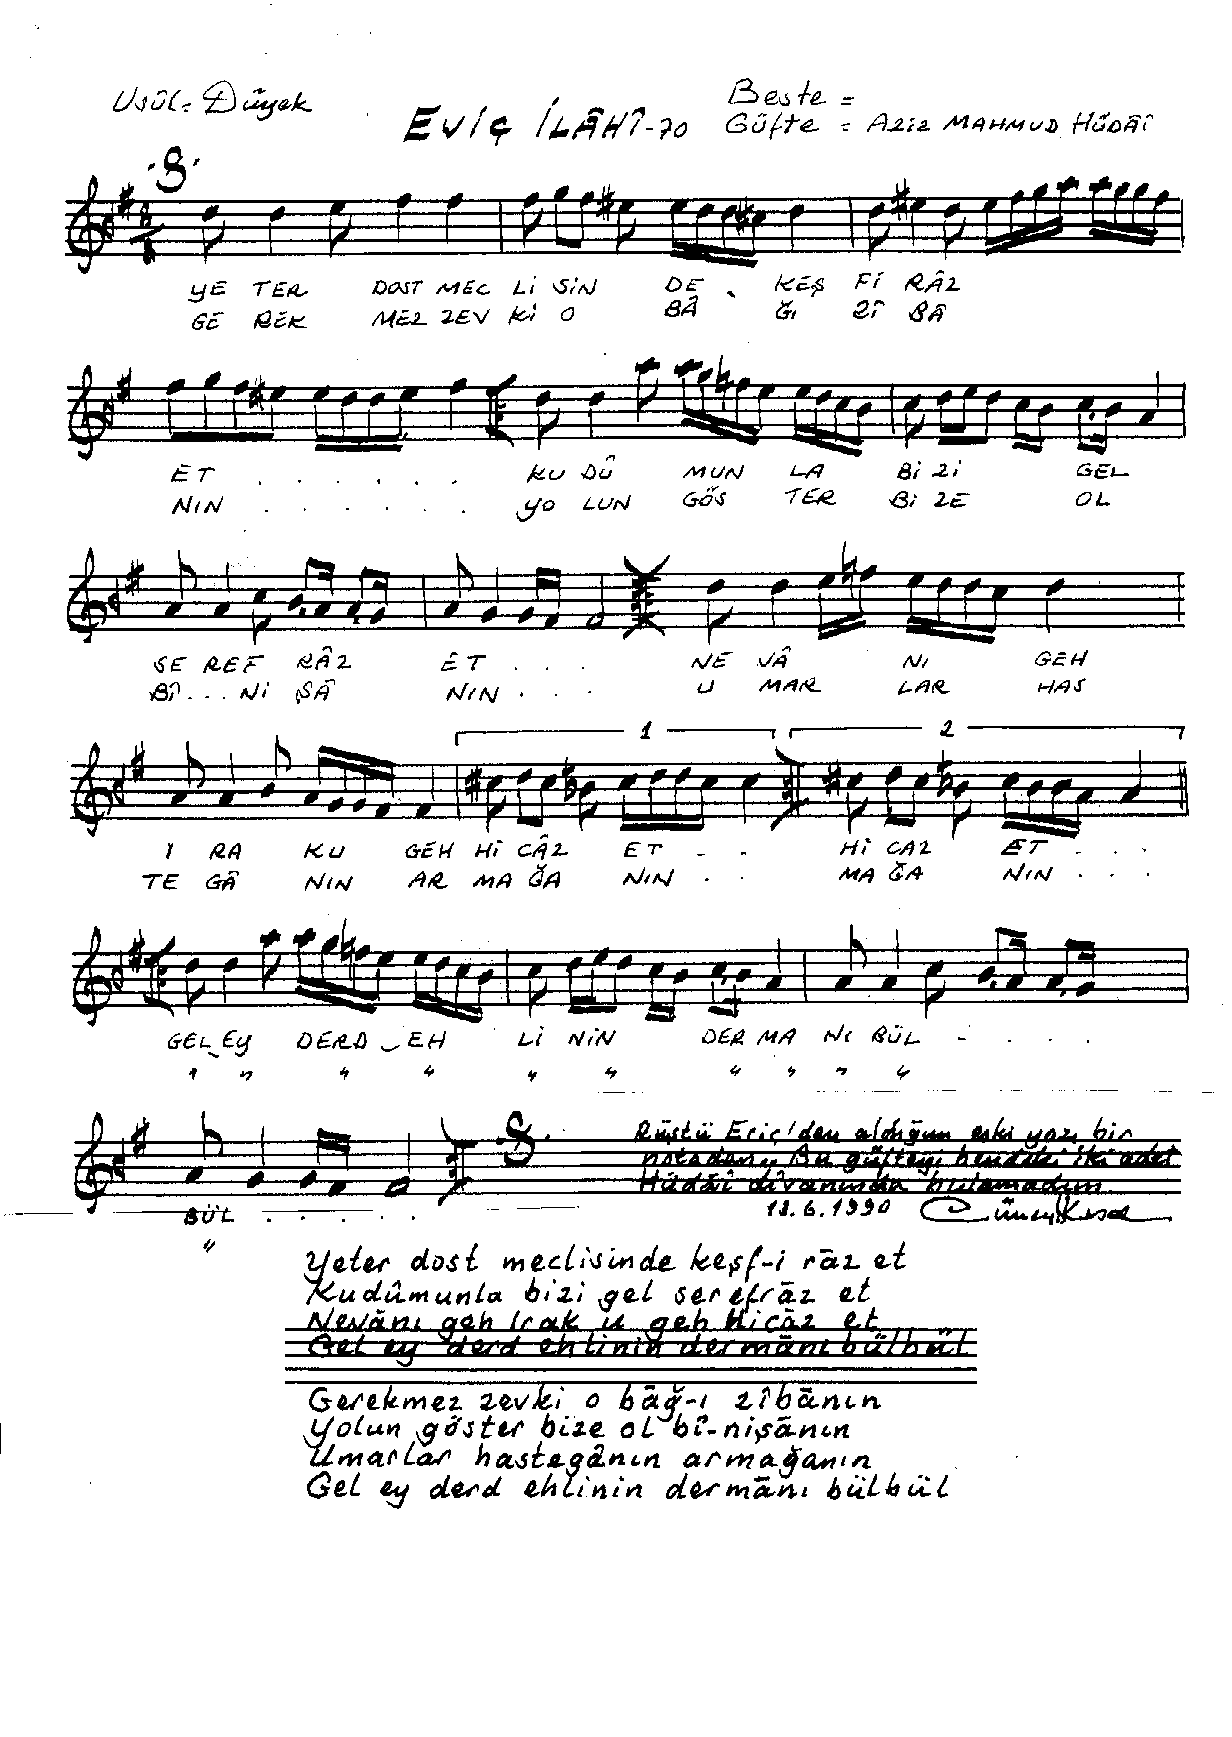 Usûl= Düyek
Beste =
EVİÇ İLÂHÎ-70 Güfte = AZİZ MAHMUD HÜDÂÎ
YE TER DOST MEC Lİ SİN DE . KEŞ Fİ RÂZ
GE REK MEZ ZEV Kİ O BÂ Ğı ZÎ BÂ
ET . . . . . . KU DÛ MUN LA Bİ Zİ GEL
NIN . . . . . . YO LUN GÖS TER Bİ ZE OL
SE REF RÂZ ET . . . NE VÂ NI GEH
BÎ . . . Nİ ŞÂ NIN . . . U MAR LAR HAS
1 2
I RA KU GEH Hİ CÂZ ET . . Hİ CAZ ET . . .
TE GÂ NIN AR MA ĞA NIN . . MA ĞA NIN . . .
GEL EY DERD EH Lİ NİN DER MA NI BÜL - . . .
" " " " " " " " " "
Rüştü Eriç'den aldığım eski yazı bir
notadan. Bu güfteyi bendeki iki adet
Hüdâî dîvanında bulamadım
BÜL . . . . . 18.6.1990
"
Yeter dost meclisinde keşf-i râz et
Kudûmunla bizi gel serefrâz et
Nevânı geh Irak u geh Hicâz et
Gel ey derd ehlinin dermânı bülbül
Gerekmez zevki o bâğ-ı zîbânın
Yolun göster bize ol bî-nişânın
Umarlar hastegânın armağanın
Gel ey derd ehlinin dermânı bülbül